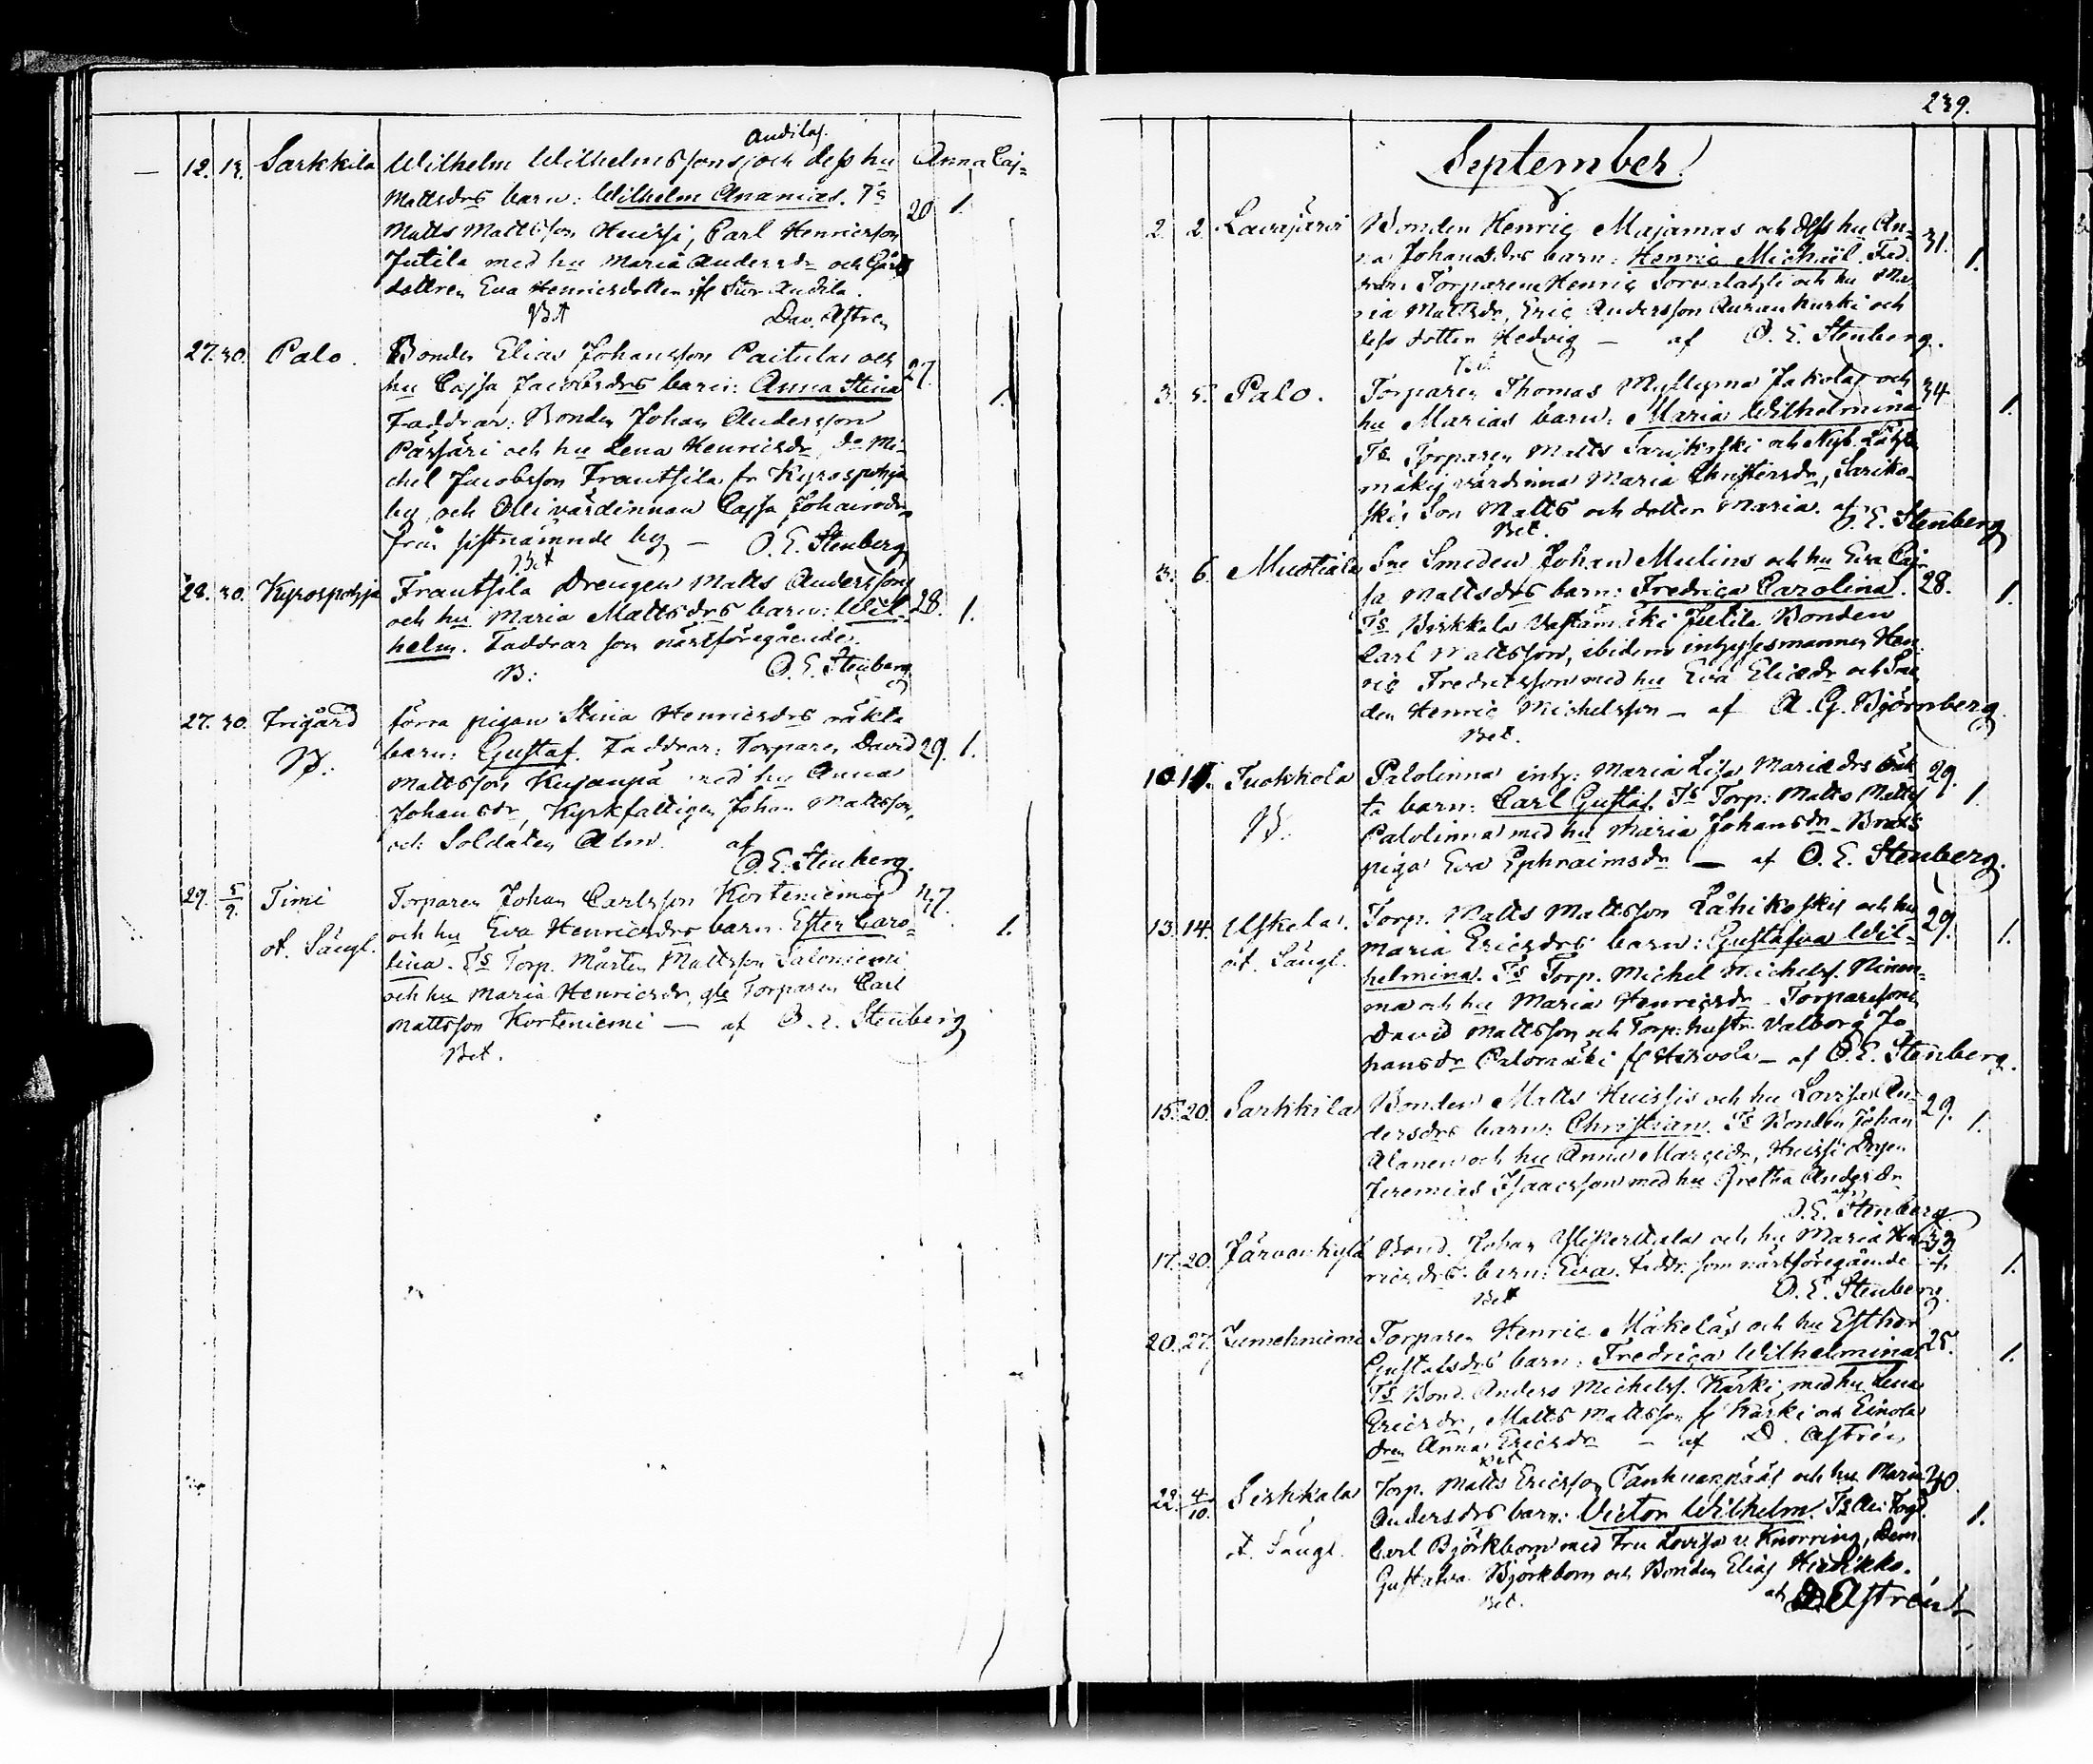 Andilas
12. 13. Sarkkila Wilhelm Wilhelmsson och dess hu Anna Caj-
Mattsdrs barn: Wilhelm Ananias. Ts 20 1.
Matts Mattsson Huissi, Carl Henricsson
Jutila med hu Maria Andersdr och
dottren Eva Henricsdotter Stor Andila.
Bet Dav. Astren
27. 30. Palo. Bonden Elias Johansson Paitulas och 27.
hu Cajsa Jacobsdrs barn: Anna Stina 1.
Faddrar: Bonden Johan Andersson
Pärssäri och hu Lena Henricsdr, Do Mi-
chel Jacobsson Frantsila fr Kyrospohja
by och Olli värdinnan Cajsa Johansdr
från sistnämnde by — O. E. Stenberg
Bet
28. 30. Kyrospohja Frantsila Drengen Matts Anderssons
och hu Maria Mattsdrs barn: Wil- 28. 1.
helm. Faddrar som nästföregående.
B: O. E. Stenberg
27. 30. Frigård förra pigan Stina Henricsdrs oäkta
barn: Gustaf. Faddrar: Torparen David 29. 1.
Mattsson Kujanpä med hu Anna
Johansdr, Kyrkfattigen Johan Mattsson,
och Soldaten Alm. af
O. E. Stenberg.
29. 5/9. Timi Torparen Johan Carlsson Korteniemis 27.
ot. Sängl. och hu Eva Henricsdrs barn Ester Caro- 1.
lina. Ts Torp. Mårten Mattsson Saloniemi
och hu Maria Henricsdr, gle Torparen Carl
Mattsson Korteniemi — af O. E. Stenberg
Bet.
239.
September
2. 2. Lavajärvi Bonden Henric Majamas och dess hu An- 31.
na Johansdrs barn: Henric Michaël. Fad- 1.
Torparen Henric och hu Ma-
ria Mattsdr, Eric Andersson Auranhurki och
dess dotter Hedvig — af O. E. Stenberg.
Bet
3. 5. Palo. Torparen Thomas Myllymä Jakolas och 34
hu Marias barn: Maria Wilhelmina 1.
Ts Torparen Matts Sarikoski och Nyb.
mäki värdinna Maria Christersdr, Sariko-
skis Son Matts och dotter Maria. af
Bet. O. E. Stenberg
3. 6. Mustiala Sne Smeden Johan Mulins och hu Eva Caj-
sa Mattsdrs barn: Fredrica Carolina. 28. 1.
Ts Birkkala Vastamäki Jutila Bonden
Carl Mattsson, ibidem inhysesmannen Hen-
ric Fredricsson med hu Eva Eliedr och
den Henric Michelsson — af A. G. Björnberg.
Bet.
10. 11. Tuokkola Palolinna inh: Maria Lisa Mariedrs oäk- 29.
ta barn: Carl Gustaf. Ts Torp: Matts Matts. 1.
Palolinna med hu Maria Johansdr —
piga Eva Ephraimsdr — af O. E. Stenberg.
13. 14. Uskela. Torp. Matts Mattsson Lähikoskis och hu 29.
ot. Sängl. Maria Ericsdrs barn: Gustafva Wil- 1.
helmina. Ts Torp. Michel Michelss.
ma och hu Maria Henricsdr — Torparesonen
David Mattsson och Torp: hustr. Valborg Jo-
hansdr Palomäki fr Hervola — af O. E. Stenberg.
15. 20. Sarkkila Bonden Matts Huissis och hu Lovisa An- 29.
dersdrs barn: Christian. Ts Bonden Johan 1.
Alanen och hu Anna Margedr, Huissi Drgen
Jeremias Isaacsson med hu Gretha Andersdr
af
O. E. Stenberg
17. 20. Järvenkylä Bond. Johan och hu Maria Hen- 33
ricsdrs barn: Eva. Faddr. som nästföregående af 1.
Bet O. E. Stenberg
20. 27. Jumehniemi Torparen Henric Mäkeläs och hu Esther 25.
Gustafsdrs barn: Fredrica Wilhelmina 1.
Ts Bond. Anders Michelss. Karki, med hu Lena
Ericsdr, Matts Mattsson fr Karki och Einola
dren Anna Ericsdr — af D. Astrén
Bet
22. 4/10. Sirkkala Torp. Matts Ericsson Tanhuanpääs och hu Maria 40.
ot. Sängl. Andersdrs barn: Victor Wilhelm. Ts 1.
Carl Björkbom med Fru Lovisa v. Knorring, Dem.
Gustafva Björkbom och Bonden Elias
Bet. af D. Astrén